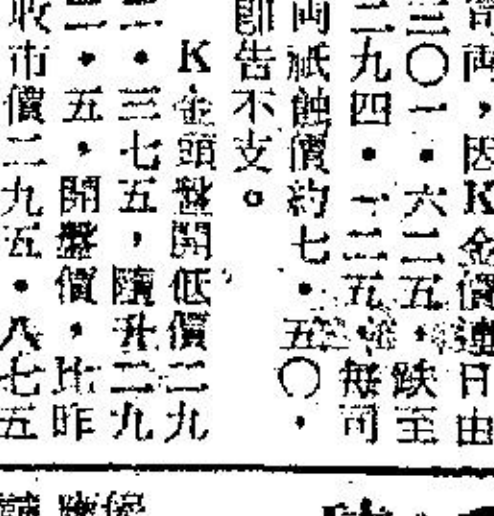 両，因K金價連日由
三〇一・六二五，跌至
二九四・一二五，無司
両紙蝕價約七・五〇，
即告不支。
K金頭盤開低價二九
二・三七五，隨升二九
二・五，開盤價，比昨
收市價二九五・八七五